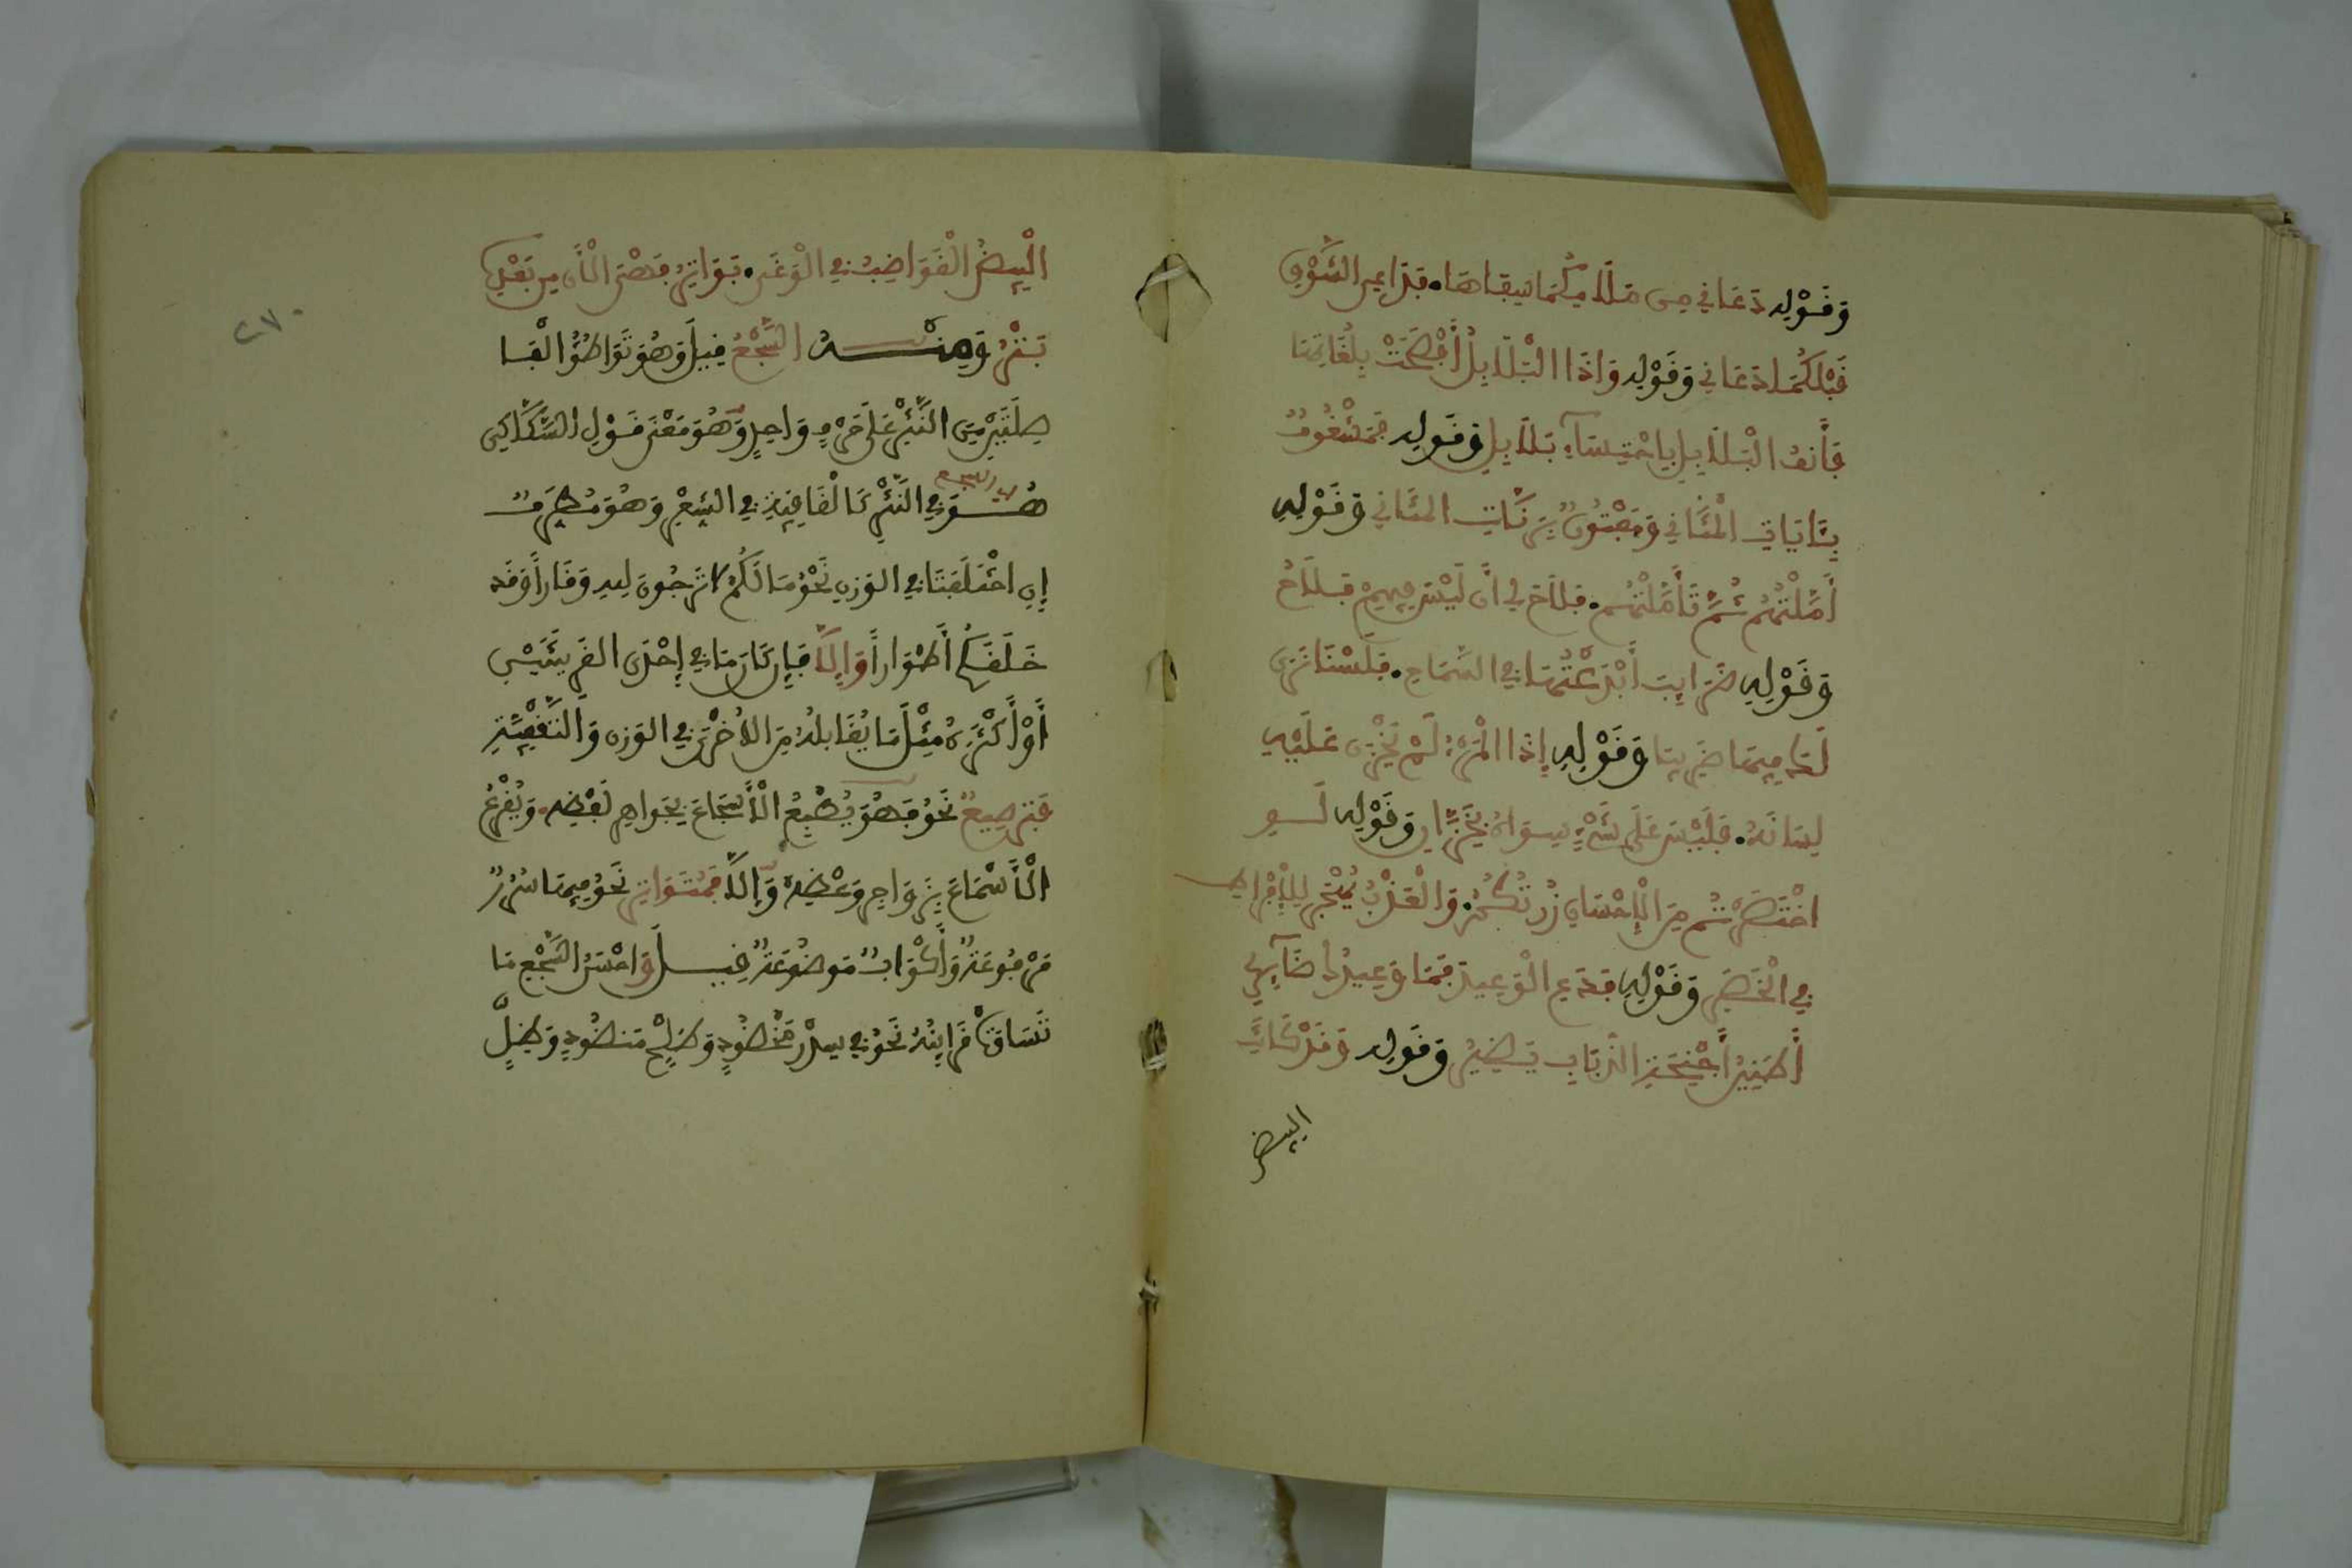 وَقَوْلِهِ دَعَانِي مِن مَلَامِكُمَا سِفَاهَا. فَدَاعِي الشَّوْقِ
قَبْلَكُمَا دَعَانِي وَقَوْلِهِ وَإِذَا الْبَلَابِلُ أَفْصَحَتْ بِلُغَاتِهَا
فَانْفِ الْبَلَابِلَ بِاحْتِسَاءِ بَلَابِلِ وَقَوْلِهِ فَمَشْغُوفٌ
بِآيَاتِ الْمَثَانِي وَمَفْتُونٌ بِرَنَّاتِ الْمَثَانِي وَقَوْلِهِ
أَمَّلْتُهُمْ ثُمَّ تَأَمَّلْتُهُمْ. فَلَاحَ لِي أَن لَيْسَ فِيهِمْ فَلَاحُ
وَقَوْلِهِ ضَرَائِبَ أَبْدَعْتَهَا فِي السَّمَاحِ. فَلَسْنَا نَرَى
لَكَ فِيهَا ضَرِيبَا وَقَوْلِهِ إِذَا الْمَرْءُ لَمْ يَخْزُنْ عَلَيْهِ
لِسَانَهُ. فَلَيْسَ عَلَى شَيْءٍ سِوَاهُ بِخَزَّانِ وَقَوْلِهِ لَوِ
اخْتَصَرْتُم مِنَ الْإِحْسَانِ زُرْتُكُمْ. وَالْعَذْبُ يُهْجَرُ لِلْإِفْرَاطِ
فِي الْخَصَرِ وَقَوْلِهِ فَدَعِ الْوَعِيدَ فَمَا وَعِيدُكَ ضَائِرِي
أَطَنِينُ أَجْنِحَةِ الذُّبَابِ يَضِيرُ وَقَوْلِهِ وَقَدْ كَانَتِ
البيض
٢٧٠
الْبِيضُ الْقَوَاضِبُ فِي الْوَغَى. بَوَاتِرُ فَهْيَ الْآنَ مِن بَعْدِهِ
بُتْرُ وَمِنْهُ السَّجْعُ قِيلَ وَهُوَ تَوَاطُؤُ الْفَا
صِلَتَيْنِ مِنَ النَّثْرِ عَلَى حَرْفٍ وَاحِدٍ وَهُوَ مَعْنَى قَوْلِ السَّكَّاكِي
اي السجع
هُوَ فِي النَّثْرِ كَالْقَافِيَةِ فِي الشِّعْرِ وَهُوَ مُطَرَّفٌ
إِنِ اخْتَلَفَتَا فِي الْوَزْنِ نَحْوُ مَا لَكُمْ لَا تَرْجُونَ لِلهِ وَقَاراً وَقَد
خَلَقَكُمْ أَطْوَاراً وَإِلَّا فَإِن كَانَ مَا فِي إِحْدَى الْقَرِينَتَيْنِ
أَوْ أَكْثَرُهُ مِثْلَ مَا يُقَابِلُهُ مِنَ الْأُخْرَى فِي الْوَزْنِ وَالتَّقْفِيَةِ
فَتَرْصِيعٌ نَحْوُ فَهُوَ يَطْبَعُ الْأَسْجَاعَ بِجَوَاهِرِ لَفْظِهِ. وَيَقْرَعُ
الْأَسْمَاعَ بِزَوَاجِرِ وَعْظِهِ وَإِلَّا فَمُتَوَازٍ نَحْوُ فِيهَا سُرُرٌ
مَرْفُوعَةٌ وَأَكْوَابٌ مَوْضُوعَةٌ قِيلَ وَأَحْسَنُ السَّجْعِ مَا
تَسَاوَتْ قَرَائِنُهُ نَحْوُ فِي سِدْرٍ مَخْضُودٍ وَطَلْحٍ مَنضُودٍ وَظِلٍّ